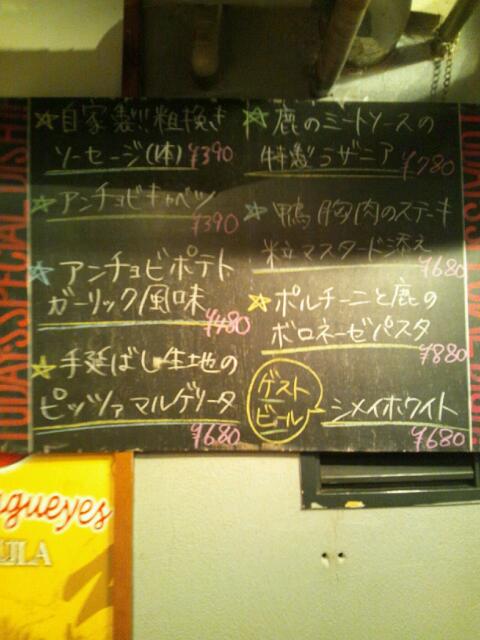 TODAY'S SPECIAL DISH
☆自家製!!粗挽き
ソーセージ(1本)¥390
☆アンチョビキャベツ
¥390
☆アンチョビポテト
ガーリック風味
¥480
☆手延ばし生地の
ピッツァマルゲリータ
¥680
☆鹿のミートソースの
特製ラザニア ¥780
☆鴨胸肉のステーキ
粒マスタード添え
¥680
☆ポルチーニと鹿の
ボロネーゼパスタ
¥880
ゲスト
ビール
シメイホワイト
¥680